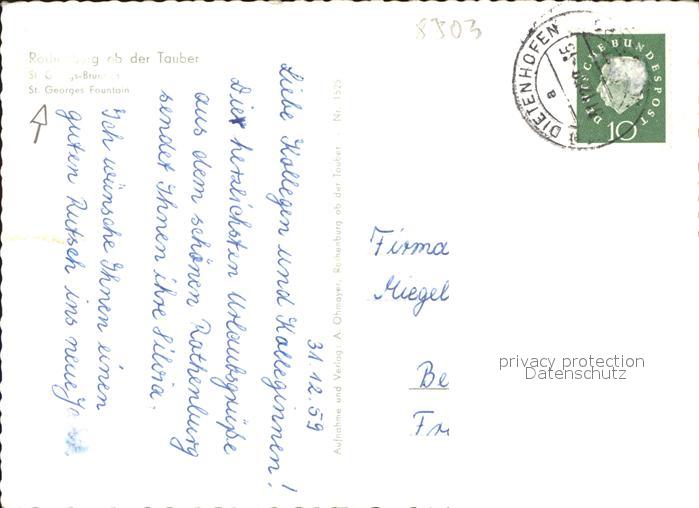 8503
Rothenburg ob der Tauber
St. Georgs-Brunnen
St. Georges Fountain
31.12.59
Liebe Kollegen und Kolleginnen!
Die herzlichsten Urlaubsgrüße
aus dem schönen Rothenburg
sendet Ihnen ihre Silvia.
Ich wünsche Ihnen einen
guten Rutsch ins neue
Aufnahme und Verlag: A. Ohmayer, Rothenburg ob der Tauber - Nr. 1525
DIETENHOFEN
a
DEUTSCHE BUNDESPOST
10
Firma
Miegel
Be
Fr
privacy protection
Datenschutz